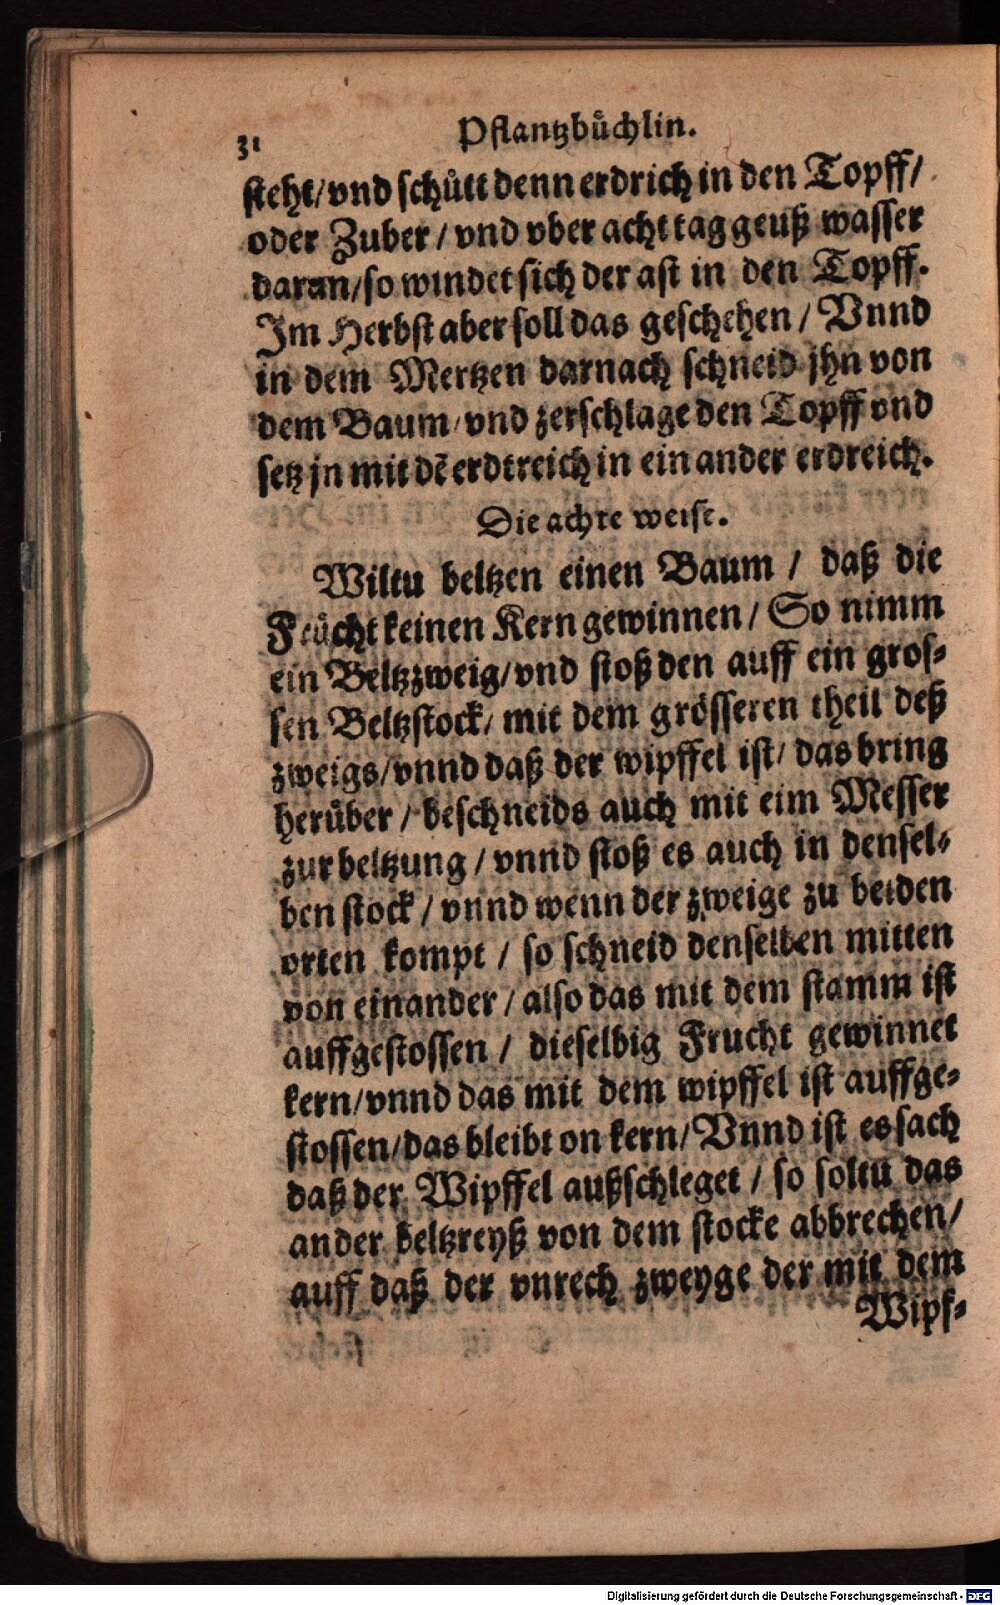 31 Pflantzbuͤchlin.
steht/vnd schuͤtt denn erdrich in den Topff/
oder Zuber/vnd vber acht tag geuß wasser
daran/so windet sich der ast in den Topff.
Im Herbst aber soll das geschehen/Vnnd
in dem Mertzen darnach schneid jhn von
dem Baum/vnd zerschlage den Topff vnd
setz jn mit dẽ erdtreich in ein ander erdreich.
Die achte weise.
Wiltu beltzen einen Baum/daß die
Fruͤcht keinen Kern gewinnen/So nimm
ein Beltzzweig/vnd stoß den auff ein gros-
sen Beltzstock/mit dem groͤsseren theil deß
zweigs/vnnd daß der wipffel ist/das bring
heruͤber/beschneids auch mit eim Messer
zur beltzung/vnnd stoß es auch in densel-
ben stock/vnnd wenn der zweige zu beiden
orten kompt/so schneid denselben mitten
von einander/also das mit dem stamm ist
auffgestossen/dieselbig Frucht gewinnet
kern/vnnd das mit dem wipffel ist auffge-
stossen/das bleibt on kern/Vnnd ist es sach
daß der Wipffel außschleget/so soltu das
ander beltzreyß von dem stocke abbrechen/
auff daß der vnrech zweyge der mit dem
Wipf-
Digitalisierung gefördert durch die Deutsche Forschungsgemeinschaft - DFG